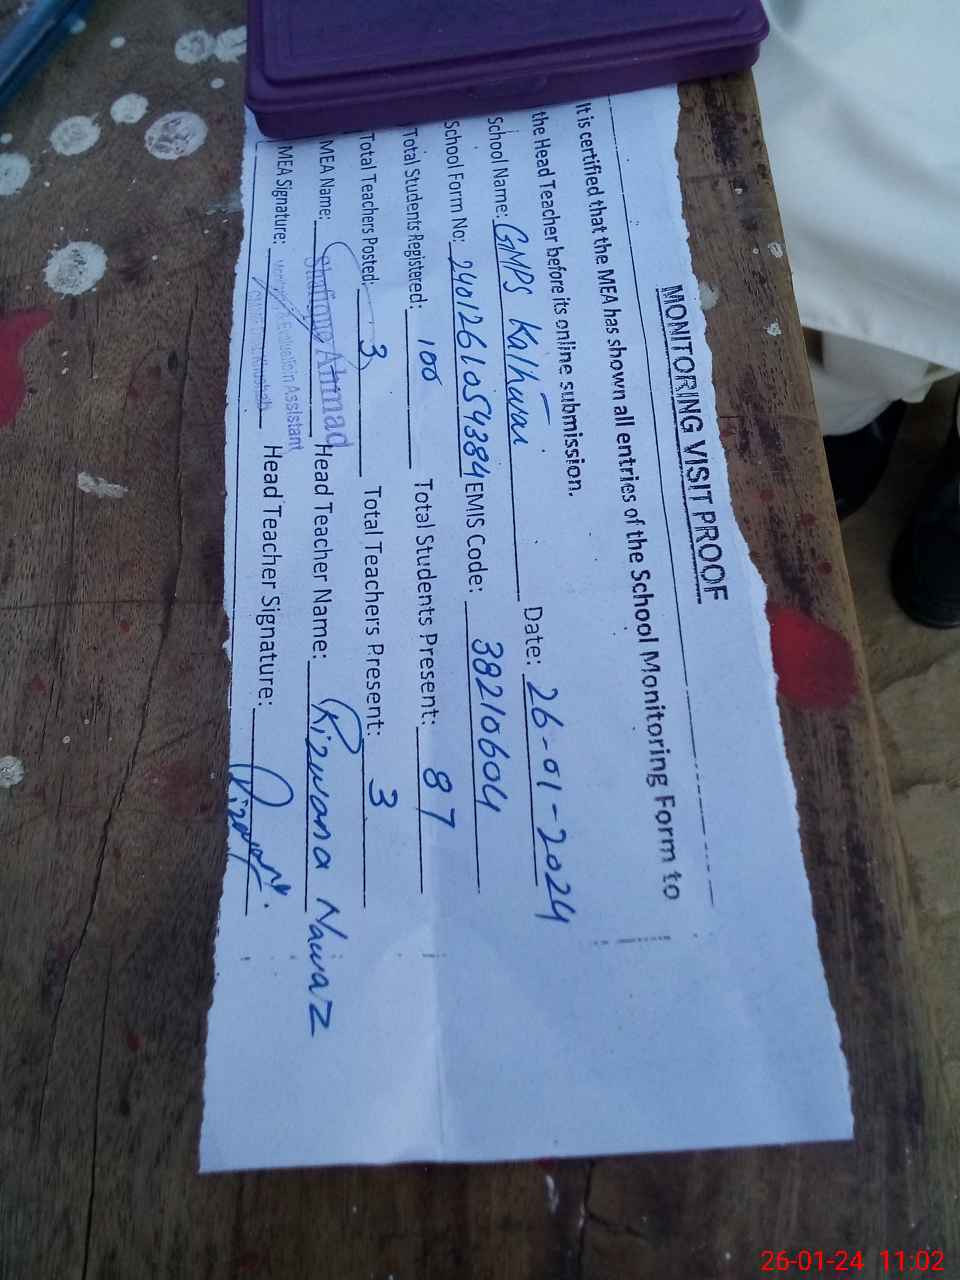 MONITORING VISIT PROOF
It is certified that the MEA has shown all entries of the School Monitoring Form to
the Head Teacher before its online submission.
School Name: GMPS Kalhwai Date: 26-01-2024
School Form No: 2401261054384 EMIS Code: 38210604
Total Students Registered: 100 Total Students Present: 87
Total Teachers Posted: 3 Total Teachers Present: 3
MEA Name: Ahmad Head Teacher Name: Rizwana Nawaz
MEA Signature: Monitoring & Evaluation Assistant Head Teacher Signature:
26-01-24 11:02